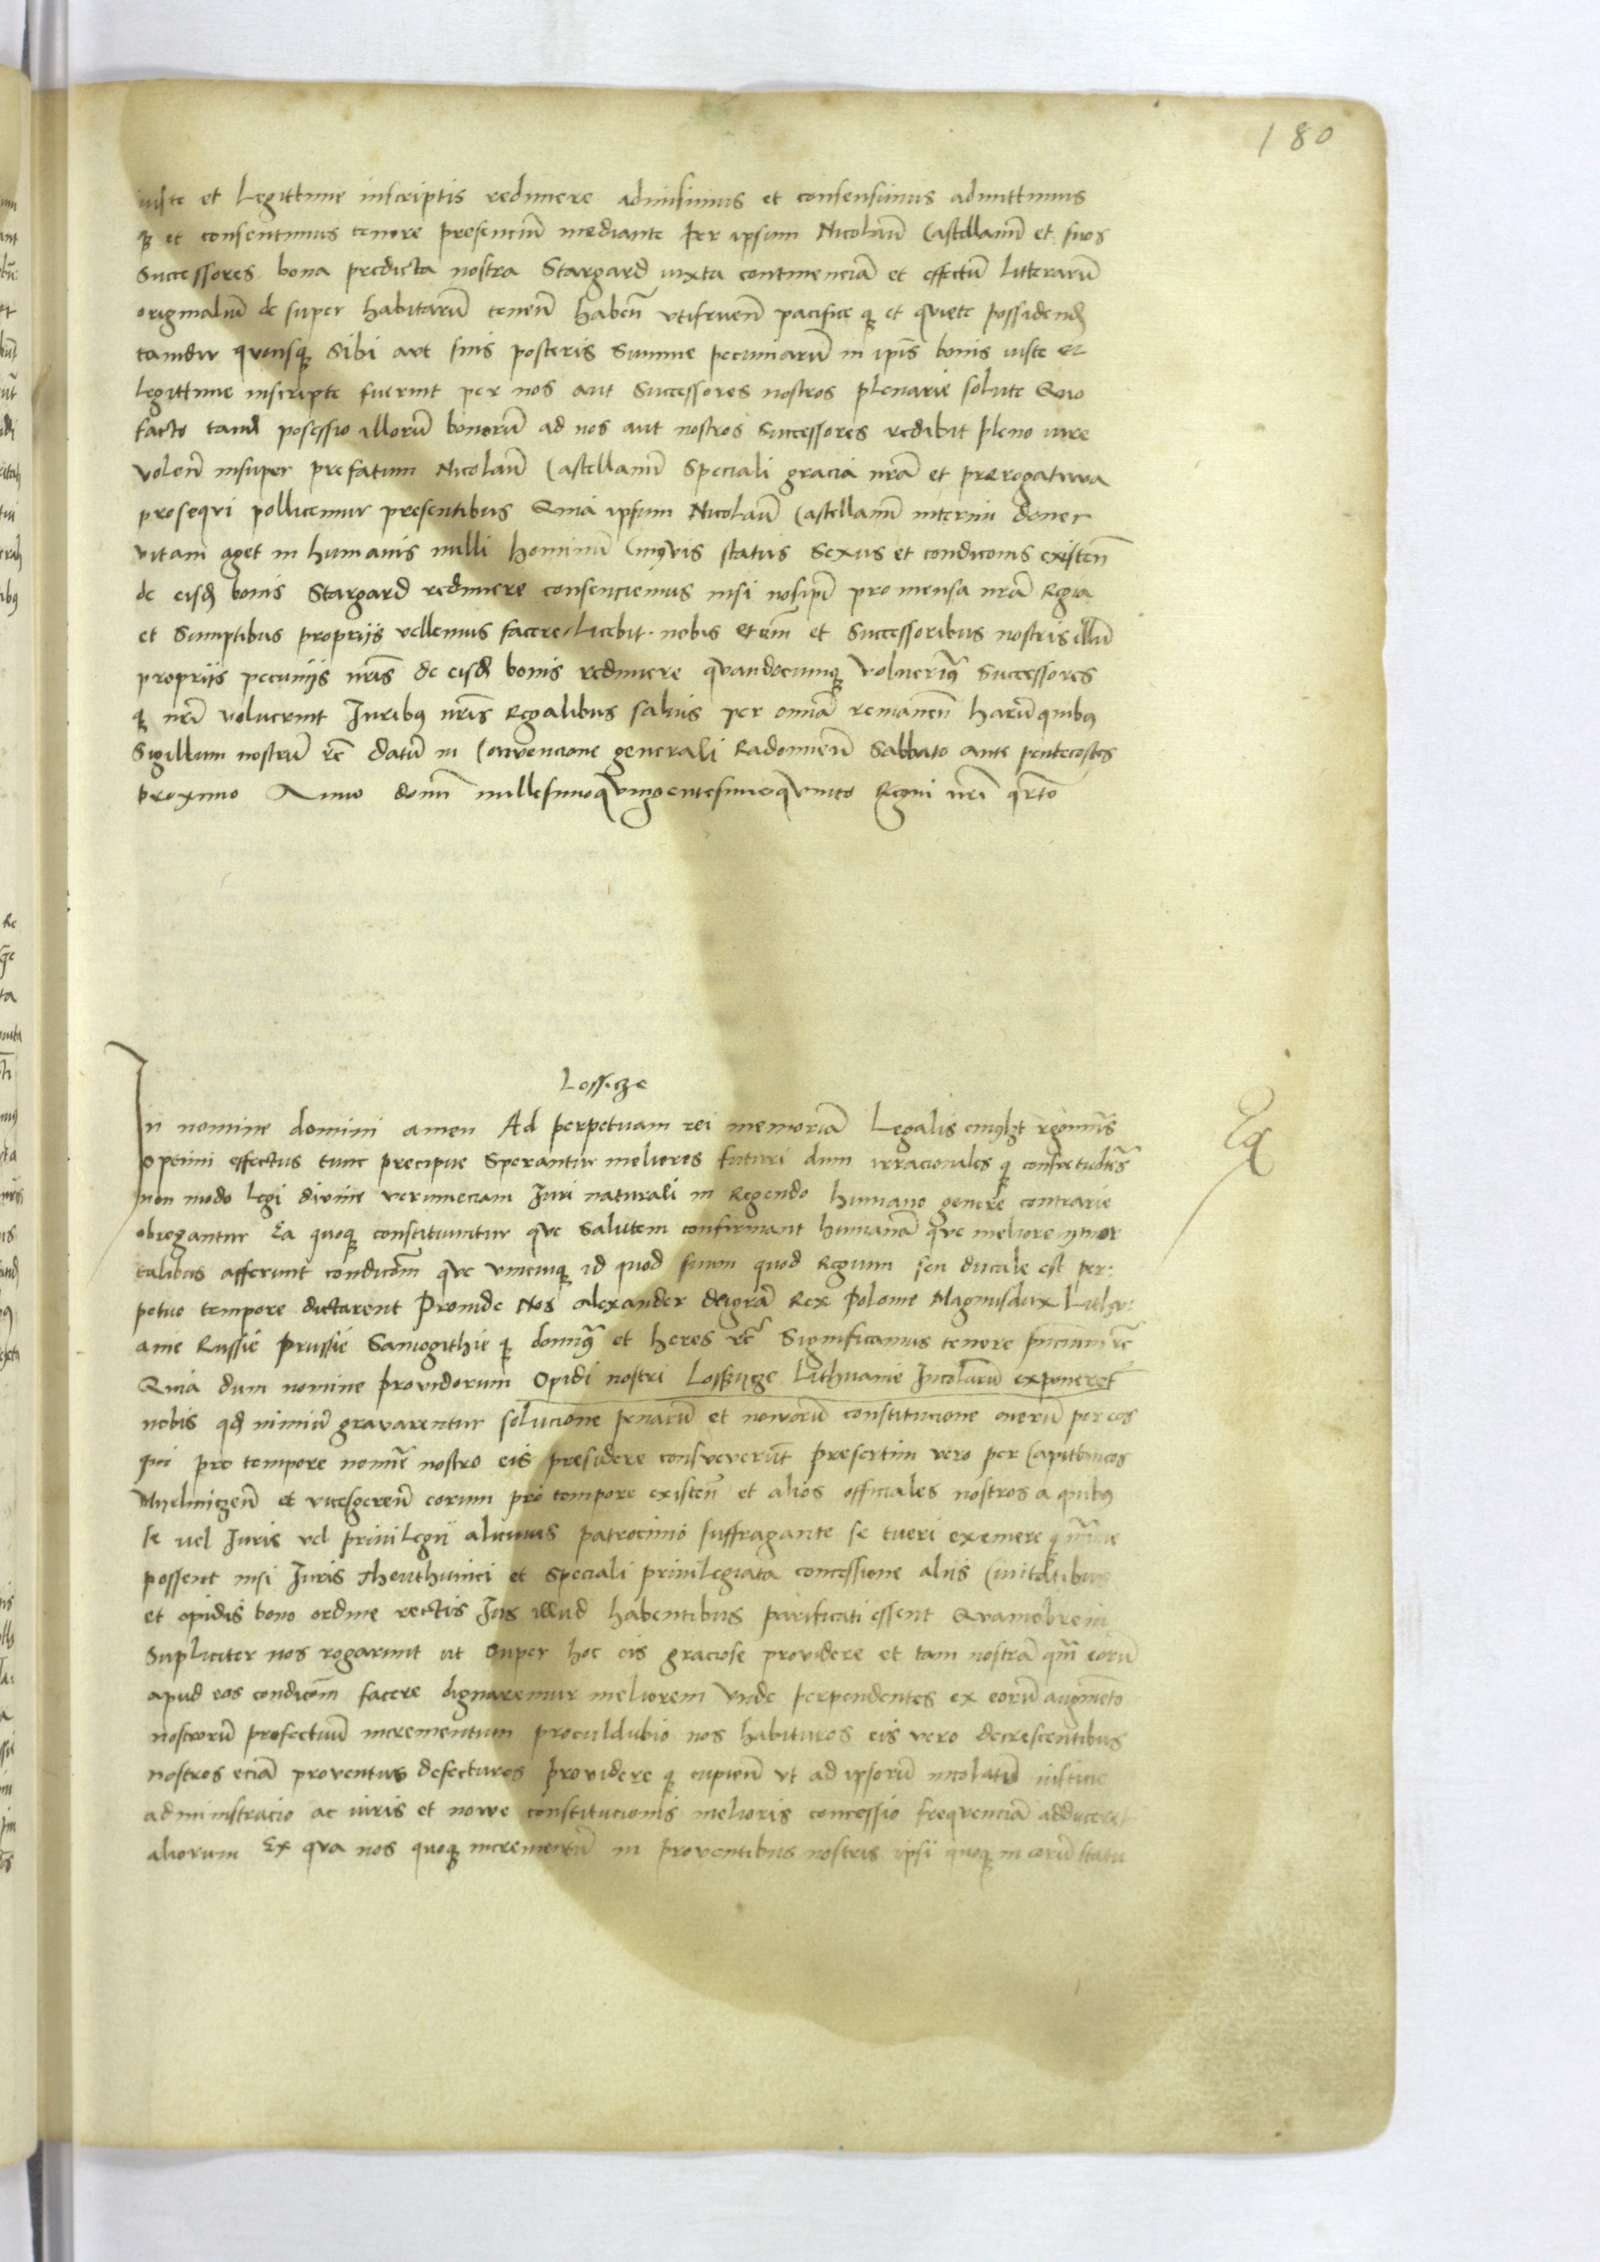 180
iuste et Legittime inscriptis redimere admisimus et consensimus admittimus
q₃ et consentimus tenore presenciũ mediante Per ipsum Nicolaũ Castellanũ et suos
Successores bona predicta nostra Stargard iuxta continenciã et effectũ litterarũ
originaliũ de super habitarũ tenen̄ haben̄ vtifruen̄ pacifice q₃ et quiete possidend̄
tamdiu quousq₃ Sibi aut suis posteris Summe pecuniarũ in ip̄is bonis iuste et
legittime inscripte fuerint per nos aut Successores nostros plenarie solute Quo
facto tand̄ posessio illorũ bonorũ ad nos aut nostros Successores redibit pleno iure
volen̄ insuper prefatum Nicolaũ Castellanũ Speciali gracia nr̃a et prerogatiua
prosequi pollicemur presentibus Quia ipsum Nicolaũ Castellanũ interim donec
vitam aget in humanis nulli hominũ cuiusuis status Sexus et condicionis existen̄
de eisd̄ bonis Stargard redimere consenciemus nisi nosip̄i pro mensa nr̃a Regia
et Sumptibus propriis vellemus facere Licebit nobis etem̄ et Successoribus nostris illũ
propriis pecuniis nr̃is de eisd̄ bonis redimere quandocumq₃ voluerim⁹ Successores
q₃ nr̃i voluerint Iurib⁹ nr̃is Regalibus saluis per omnia remanen̄ harũ quib⁹
Sigillum nostrũ rc̄ datũ in Conuencione generali Radomien̄ Sabbato ante pentecostes
proximo Anno domi millesimoquingentesimoquinto Regni nr̃i q̄rto
Lossicze
In nomine domini amen Ad perpetuam rei memoriã Legalis
optimi effectus tunc precipue Sperantur meliores futuri dum irracionales q₃ consuetudi̅s
non modo legi diuine verumeciam Iuri naturali in Regendo humano genere contrarie
obregantur Ea quoq₃ constituuntur que Salutem confirmant humanã que meliorem mor
talibus afferunt condicõm que vnicuiq₃ id quod suum quod Regium seu ducale est per
petuo tempore dictarent Proinde Nos alexander deigrã Rex Polonie Magnusdux Lithu
anie Russie Prussie Samogithie q₃ domin⁹ et heres rc̄ Significamus tenore pñcium rc̄
Quia dum nomine prouidorum Opidi nostri Losszycze Lithuanie Incolarũ exponeret̃
nobis qd̄ nimiũ grauarentur solucione penarũ et nouorũ constitucione onerũ per eos
qui pro tempore nomĩe nostro eis presidere consueuerũt presertim vero per Capitaneos
Myelniczen̄ et vicesgeren̄ eorum pro tempore existen̄ et alios officiales nostros a quib⁹
se vel Iuris vel priuilegii alicuius patrocinio suffragante se tueri exemere q₃
possent nisi Iuris Theuthunici et Speciali priuilegiata concessione aliis Ciuitatibus
et opidis bono ordine rectis Jus illud habentibus parificati essent Quamobrem
Supliciter nos rogarunt ut Super hoc eis graciose prouidere et tam nostrã qm̄ eorũ
apud eos condicõm facere dignaremur meliorem Vnde perpendentes ex eorũ augmẽto
nostrorũ profectuũ incrementum proculdubio nos habituros eis vero decrescentibus
nostros eciã prouentus defecturos prouidere q₃ cupien̄ vt ad ipsorũ incolatũ iusticie
administracio ac iuris et nowe constitucionis melioris concessio frequenciã adduceret
aliorum Ex qua nos quoq₃ incrementũ in prouentibus nostris ipsi quoq₃ in eorũ statu